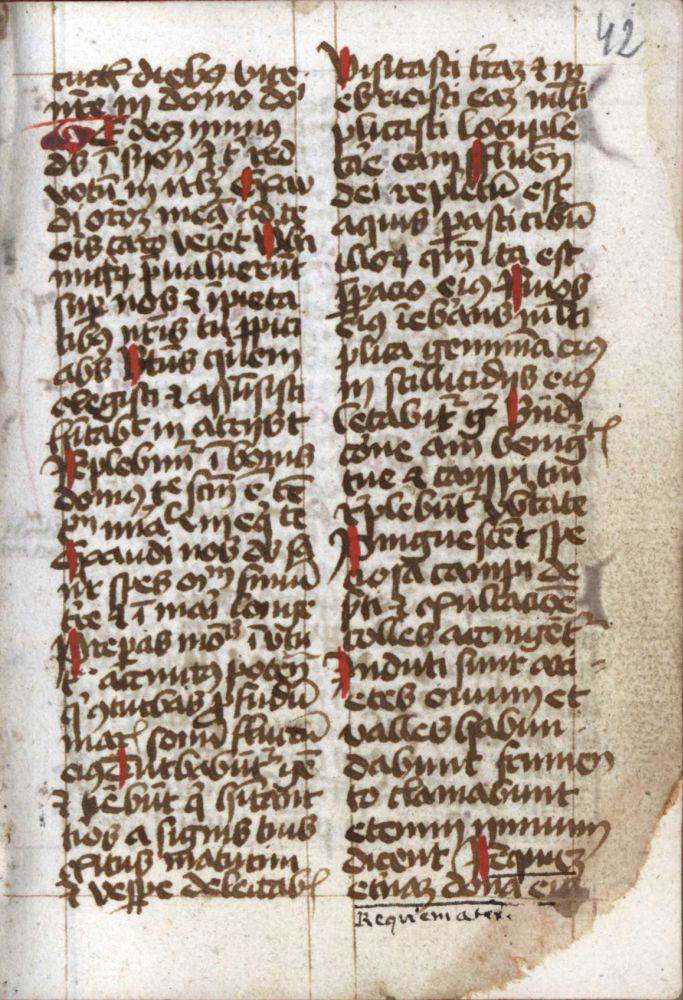 42
cuct(is) dieb(us) vite
n(ost)re in domo do(mini)
Te dec(et) ymnus
d(eu)s i(n) syon (et) t(ibi) red(detur)
votu(m) in ier(usa)l(e)m Exau
di or(ati)o(ne)m mea(m) ad te
o(mn)is caro veiet Verba
iniq(uorum) p(re)ualueru(n)t
sup(er) nos (et) i(m)pieta
tib(us) n(ost)ris tu p(ro)pici
ab(er)is B(ea)tus quem
elegisti (et) assu(m)psisti
h(ab)itab(i)t in atrijs t(uis)
Replebim(ur) i(n) bonis
dom(us) t(u)e s(an)c(tu)m e(st) te(m)
pl(u)m mirabile in eq(ui)t(at)e
Exaudi nos d(eu)s sa(l)
u(ta)r(is) n(oste)r spes o(mn)iu(m) finiu(m)
t(er)re (et) i(n) mari longe
Preparas mo(n)tes i(n) v(ir)tu
t(e) accinct(us) pote(n)tia
q(ui) (con)turbas p(ro)fundu(m)
mar(is) sonu(m) fluctuu(m)
ei(us) Turbabu(n)t(ur) ge(n)tes
(et) timebu(n)t q(ui) h(ab)itant
t(er)mi(n)os a signis tuis
exitus matutini
(et) vesp(er)e delectab(is)
Visitasti t(er)ra(m) (et) in
ebriasti eam m(u)lti
plicasti locuple
tare eam Flume(n)
dei repletu(m) est
aquis parasti cibu(m)
illor(um) q(uonia)m ita est
p(re)p(ar)acio ei(us) Riuos
ei(us) i(n)ebria(n)s m(u)lti
plica genimina ei(us)
in stillicidijs ei(us)
letabit(ur) g(erminans) B(e)n(e)di(c)
cone anni benig(nita)t(is)
tue (et) campi tui
replebu(n)t(ur) vb(er)tate
Pinguesce(n)t spe
ciosa campi de
s(er)ti (et) exultacio(n)e
colles accinge(n)t(ur)
Induti sunt ari-
etes ouium et
valles habun-
dabunt frumen
to clamabunt
etenim ymnum
dicent Requiem
et(er)na(m) dona eis
Requiem æter.